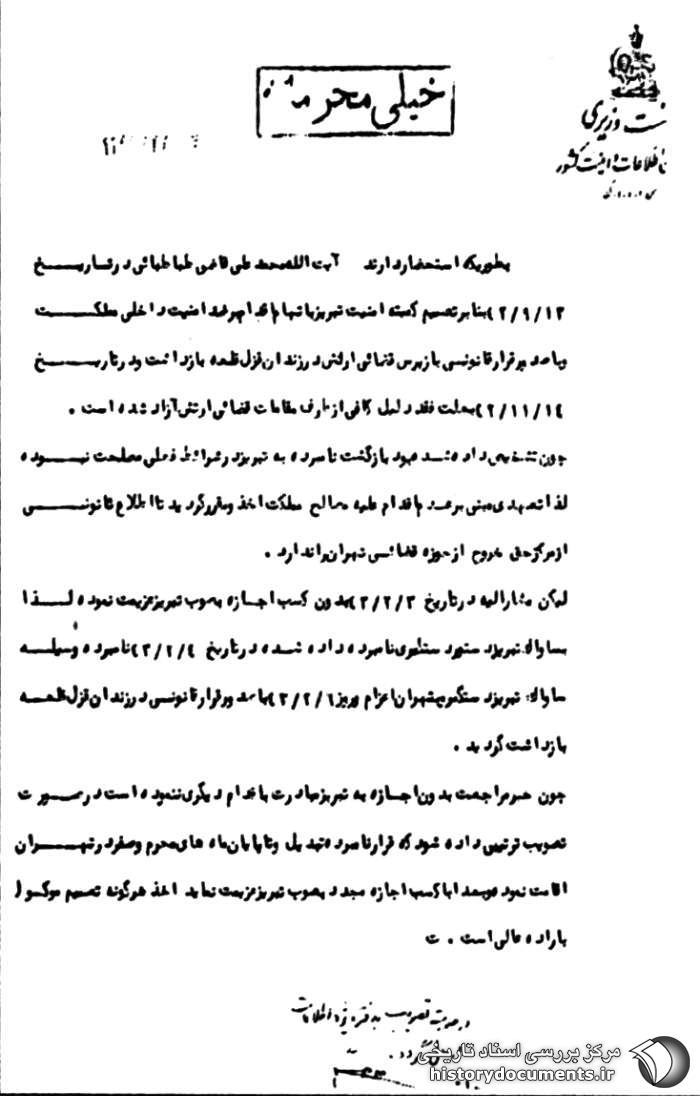 خیلی محرمانه
نخست وزیری
اطلاعات و امنیت کشور
بطوریکه استحضار دارند آیت الله محمد علی قاضی طباطبائی در تاریخ
۴۲/۹/۱۳ بنا بر تصمیم کمیته امنیت تبریز باتهام اقدام بر ضد امنیت داخلی مملکت
و با صدور قرار قانونی بازپرس قضائی ارتش در زندان قزل قلعه بازداشت و در تاریخ
۴۲/۱۱/۱۴ بعلت فقد دلیل کافی از طرف مقامات قضائی ارتش آزاد شده است .
چون تشخیص داده شده بود بازگشت نامبرده به تبریز در شرائط فعلی مصلحت نبوده
لذا تعهدی مبنی بر عدم اقدام علیه مصالح مملکت اخذ و مقرر گردید تا اطلاع ثانوی
از مرکز حق خروج از حوزه قضائی تهران را ندارد .
لیکن مشارالیه در تاریخ ۴۳/۲/۳ بدون کسب اجازه بصوب تبریز عزیمت نموده لذا
بساواک تبریز دستور دستگیری نامبرده داده شده در تاریخ ۴۳/۲/۴ نامبرده وسیله
ساواک تبریز دستگیر و بتهران اعزام و روز ۴۳/۲/۶ با صدور قرار قانونی در زندان قزل قلعه
بازداشت گردید .
چون جز مراجعت بدون اجازه به تبریز مبادرت باقدام دیگری ننموده است در صورت
تصویب ترتیبی داده شود که قرار نامبرده تبدیل و تا پایان ماه های محرم و صفر در تهران
اقامت نموده و بعدا با کسب اجازه مجدد بصوب تبریز عزیمت نماید اخذ هرگونه تصمیم موکول
باراده عالی است . ت
در صورت تصویب
مرکز بررسی اسناد تاریخی
historydocuments.ir